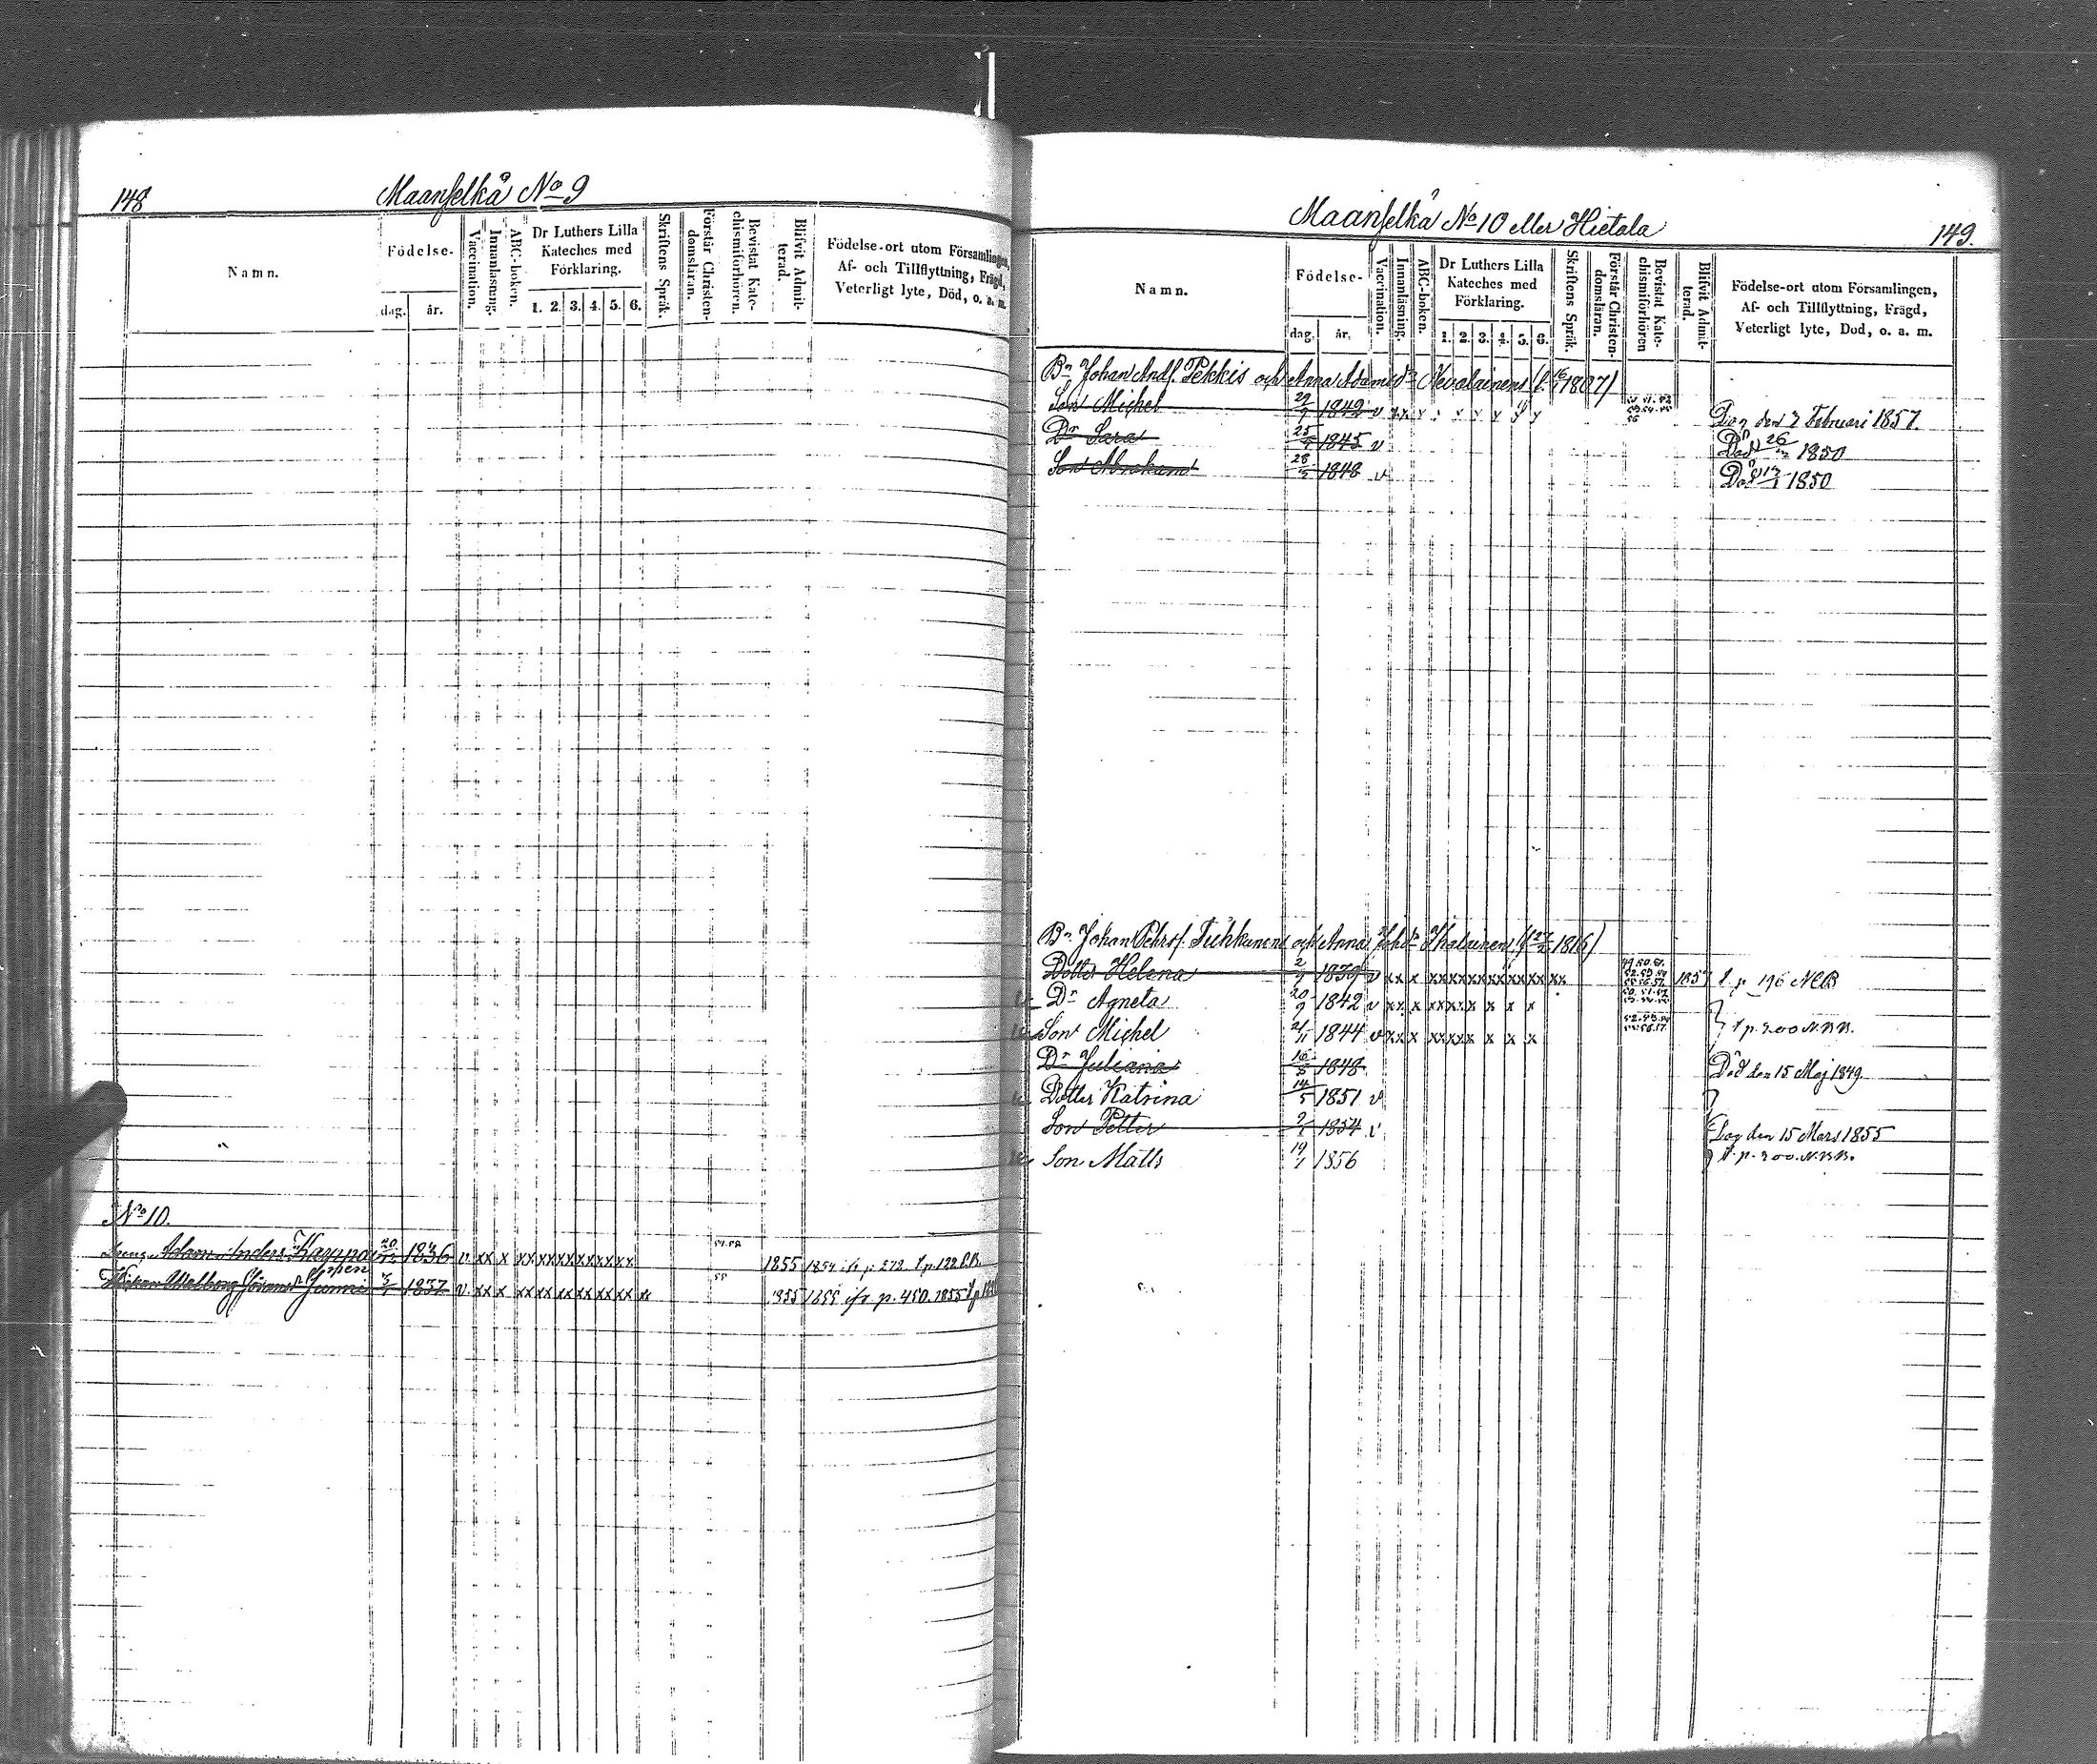 148 Maanselkä No 9
Namn.
Födelse-
dag. år.
Vaccination.
Innanläsning.
ABC-boken.
Dr Luthers Lilla
Kateches med
Förklaring.
1. 2. 3. 4. 5. 6.
Skriftens Språk.
Förstår Christen-
domsläran.
Bevistat Kate-
chismiförhören.
Blifvit Admit-
terad.
Födelse-ort utom Församlingen,
Af- och Tillflyttning, Frägd,
Veterligt lyte, Död, o. a. m.
No 10.
Adam Anders 20 1836 v xx x xx xx xx xx xx xx 1855 1854 p. 272
Walborg 1837 v xx x xx xx xx xx xx xx xx 55 1855 1855 p. 450. 1855
Maanselkä No 10 eller Hietala 149.
Namn.
Födelse-
dag. år.
Vaccination.
Innanläsning.
ABC-boken.
Dr Luthers Lilla
Kateches med
Förklaring.
1. 2. 3. 4. 5. 6.
Skriftens Språk.
Förstår Christen-
domsläran.
Bevistat Kate-
chismiförhören
Blifvit Admit-
terad.
Födelse-ort utom Församlingen,
Af- och Tillflyttning, Frägd,
Veterligt lyte, Död, o. a. m.
Bn Johan Andf. Pekkis och Anna Adamsdr Kevalainen 1807)
Son Michel 1842 v den 7 Februari 1857.
Dr Sara 25 1845 v Död 26 1850
Son Abraham 28 1848 v Död 1850
Bn Johan Pehrsf. Tuhkunen och Anna Ihalainen 1816)
Dotter Helena 2 1839 v xx x xx xx xx xx xx xx xx 1857 t. p. 196 NCB
Dr Agneta 20/9 1842 v xx x xx xx x x x x
Son Michel 21/11 1844 v xx x xx xx x x x t p. 200 N.B.B.
Dr Juliana 16 1848 Död den 15 Maj 1849
Dotter Katrina 14/5 1851 v
Son Petter 1854 v den 15 Mars 1855
Son Matts 19/1 1856 t. p. 200. N.B.B.